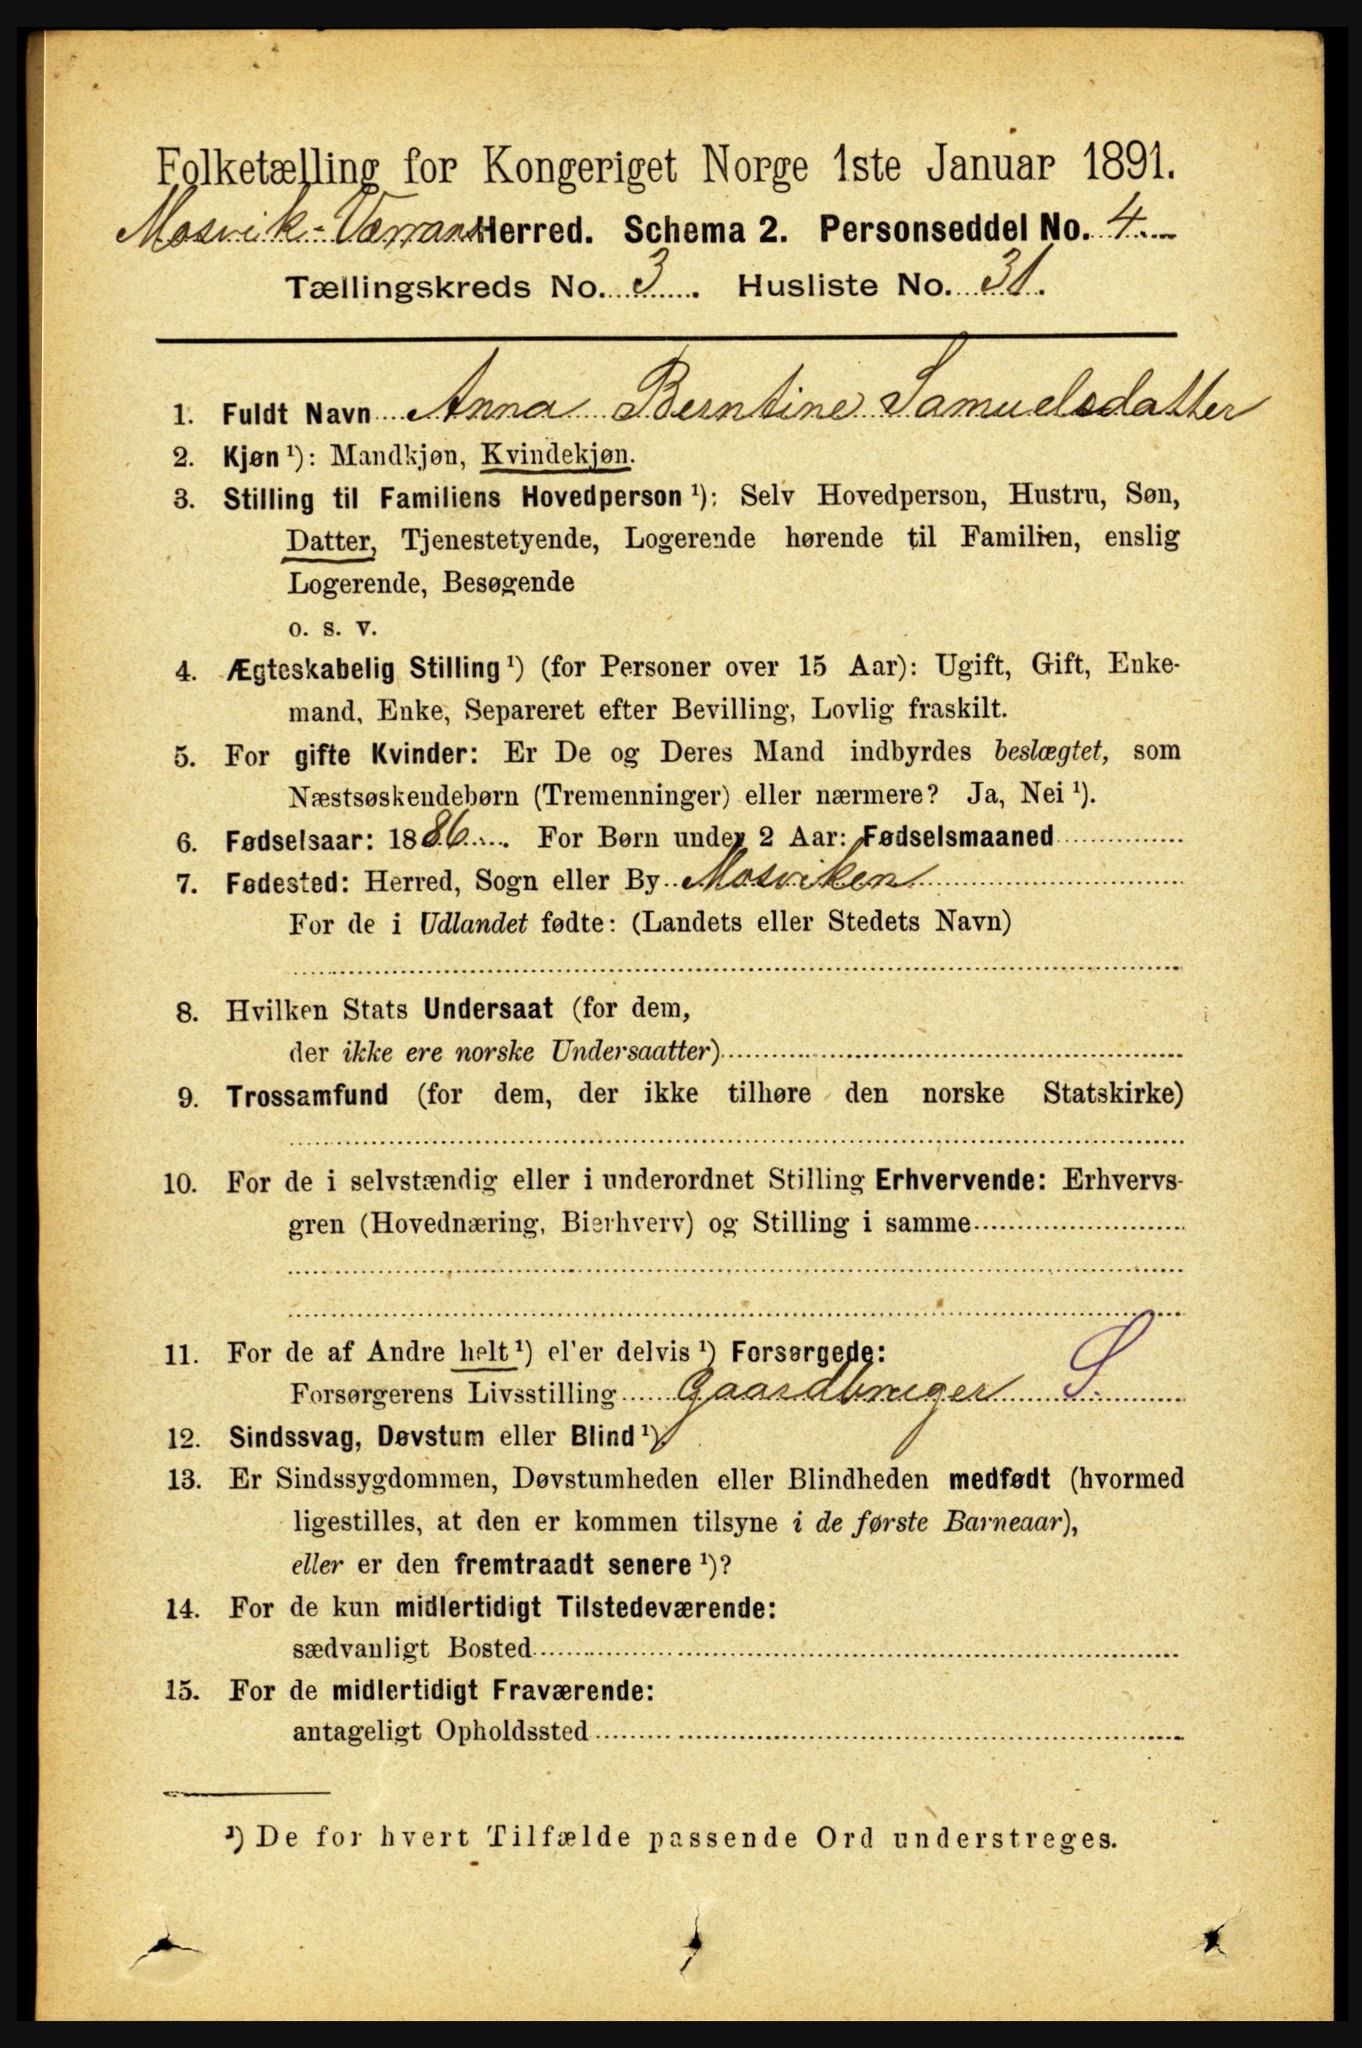 Folketælling for Kongeriget Norge 1ste Januar 1891.
Mosvik-Værrans Herred. Schema 2. Personseddel No. 4.
Tællingskreds No. 3. Husliste No. 31.
1. Fuldt Navn Anna Berntine Samuelsdatter
2. Kjøn ¹): Mandkjøn, Kvindekjøn.
3. Stilling til Familiens Hovedperson ¹): Selv Hovedperson, Hustru, Søn,
Datter, Tjenestetyende, Logerende hørende til Familien, enslig
Logerende, Besøgende
o. s. v.
4. Ægteskabelig Stilling ¹) (for Personer over 15 Aar): Ugift, Gift, Enke-
mand, Enke, Separeret efter Bevilling, Lovlig fraskilt.
5. For gifte Kvinder: Er De og Deres Mand indbyrdes beslægtet, som
Næstsøskendebørn (Tremenninger) eller nærmere? Ja, Nei ¹).
6. Fødselsaar: 1886. For Børn under 2 Aar: Fødselsmaaned
7. Fødested: Herred, Sogn eller By Mosviken
For de i Udlandet fødte: (Landets eller Stedets Navn)
8. Hvilken Stats Undersaat (for dem,
der ikke ere norske Undersaatter)
9. Trossamfund (for dem, der ikke tilhøre den norske Statskirke)
10. For de i selvstændig eller i underordnet Stilling Erhvervende: Erhvervs-
gren (Hovednæring, Bierhverv) og Stilling i samme
11. For de af Andre helt ¹) el'er delvis ¹) Forsørgede:
Forsørgerens Livsstilling Gaardbruger S.
12. Sindssvag, Døvstum eller Blind ¹).
13. Er Sindssygdommen, Døvstumheden eller Blindheden medfødt (hvormed
ligestilles, at den er kommen tilsyne i de første Barneaar),
eller er den fremtraadt senere ¹)?
14. For de kun midlertidigt Tilstedeværende:
sædvanligt Bosted
15. For de midlertidigt Fraværende:
antageligt Opholdssted
¹) De for hvert Tilfælde passende Ord understreges.